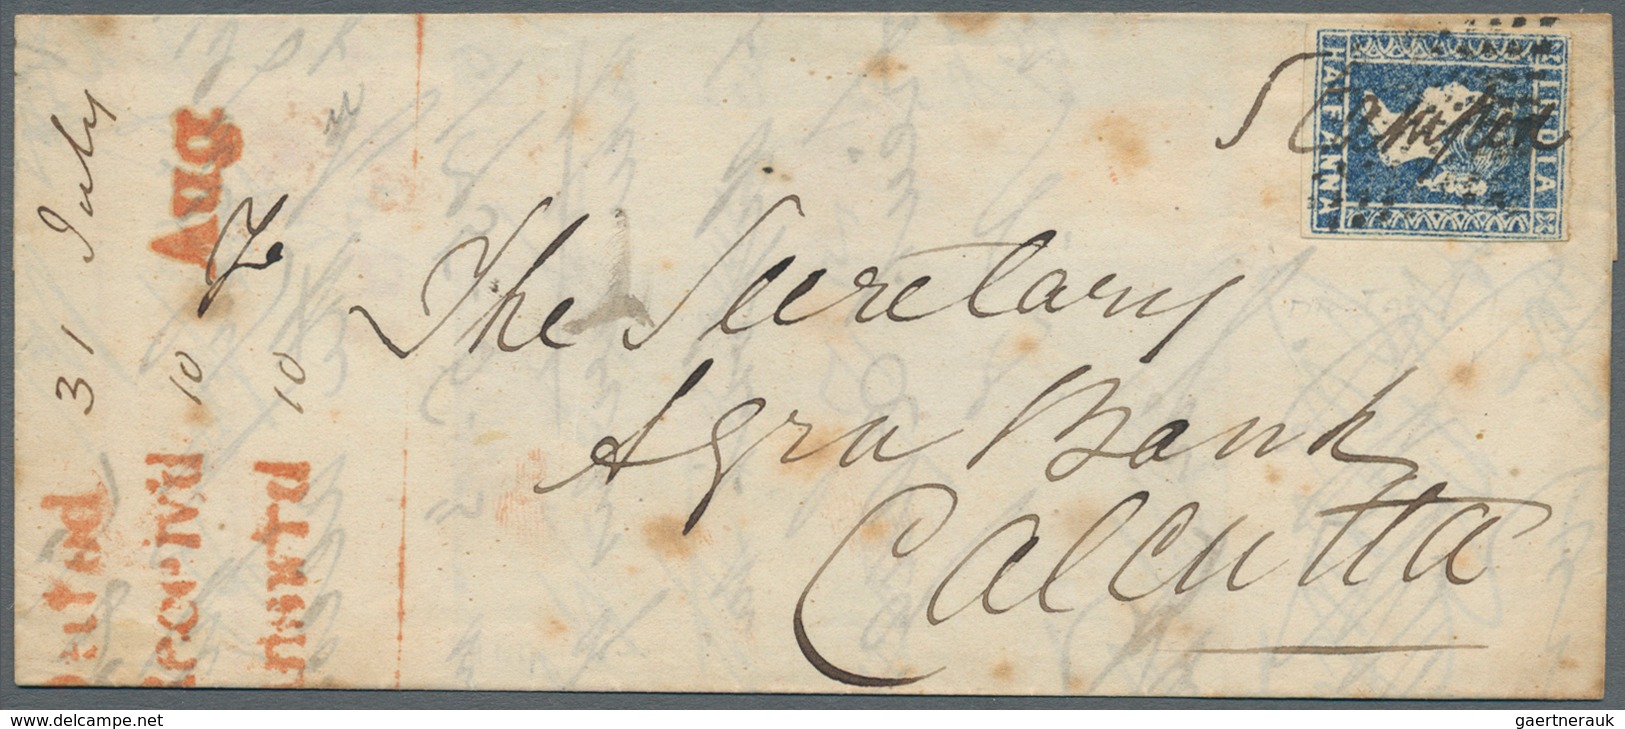 Stamped
HALF ANNA
INDIA
To
The Secretary
Agra Bank
Calcutta
Dated 31 July
Receiv'd 10 Aug
Answer'd 10 "
www.delcampe.net
gaertnerauk